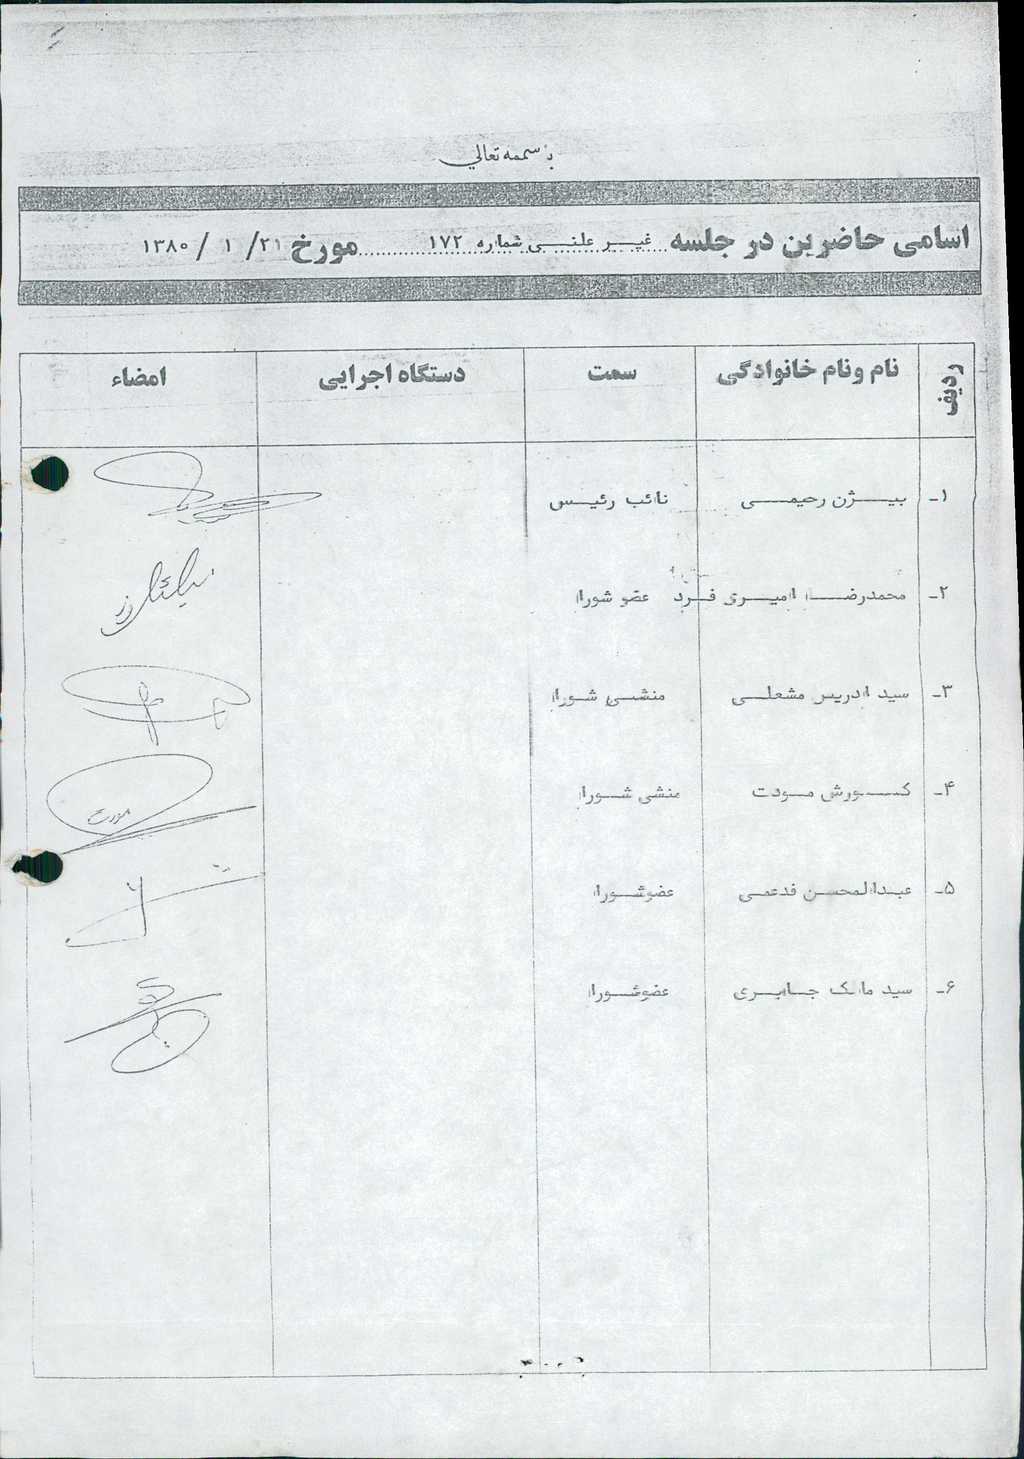 باسمه تعالی
اسامی حاضرین در جلسه غیر علنی شماره ۱۷۲ مورخ ۲۱/ ۱ / ۱۳۸۰
ردیف نام ونام خانوادگی سمت دستگاه اجرایی امضاء
۱- بیژن رحیمی نائب رئیس
۲- محمدرضا امیری فرد عضو شورا
۳- سید ادریس مشعلی منشی شورا
۴- کورش مودت منشی شورا
مودت
۵- عبدالمحسن فدعمی عضوشورا
۶- سید مالک جابری عضوشورا